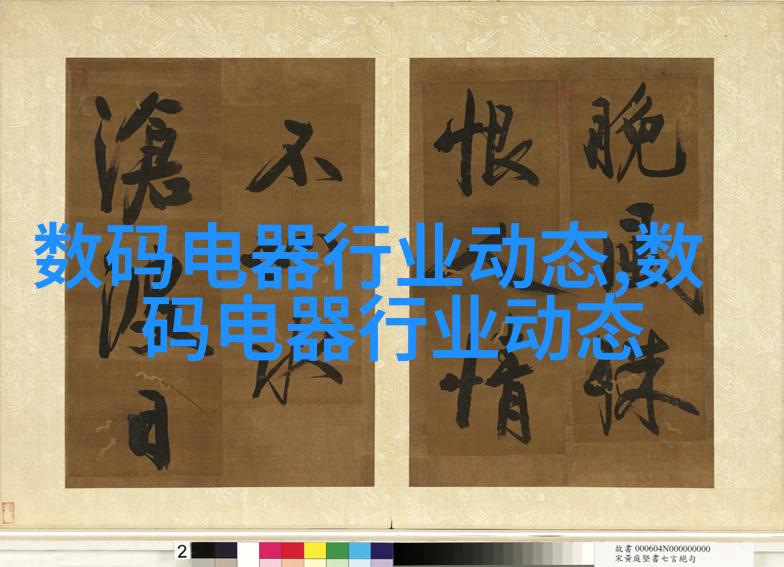 数码电器行业动态,数
码电器行业动态
晚
恨
情
不
滄
日
2
故書 000604N000000000
宋黃庭堅書七言絕句